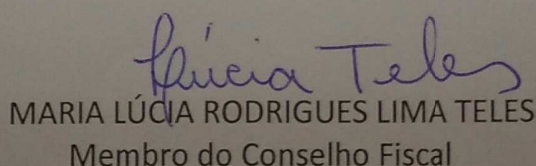 Lúcia Teles
MARIA LÚCIA RODRIGUES LIMA TELES
Membro do Conselho Fiscal